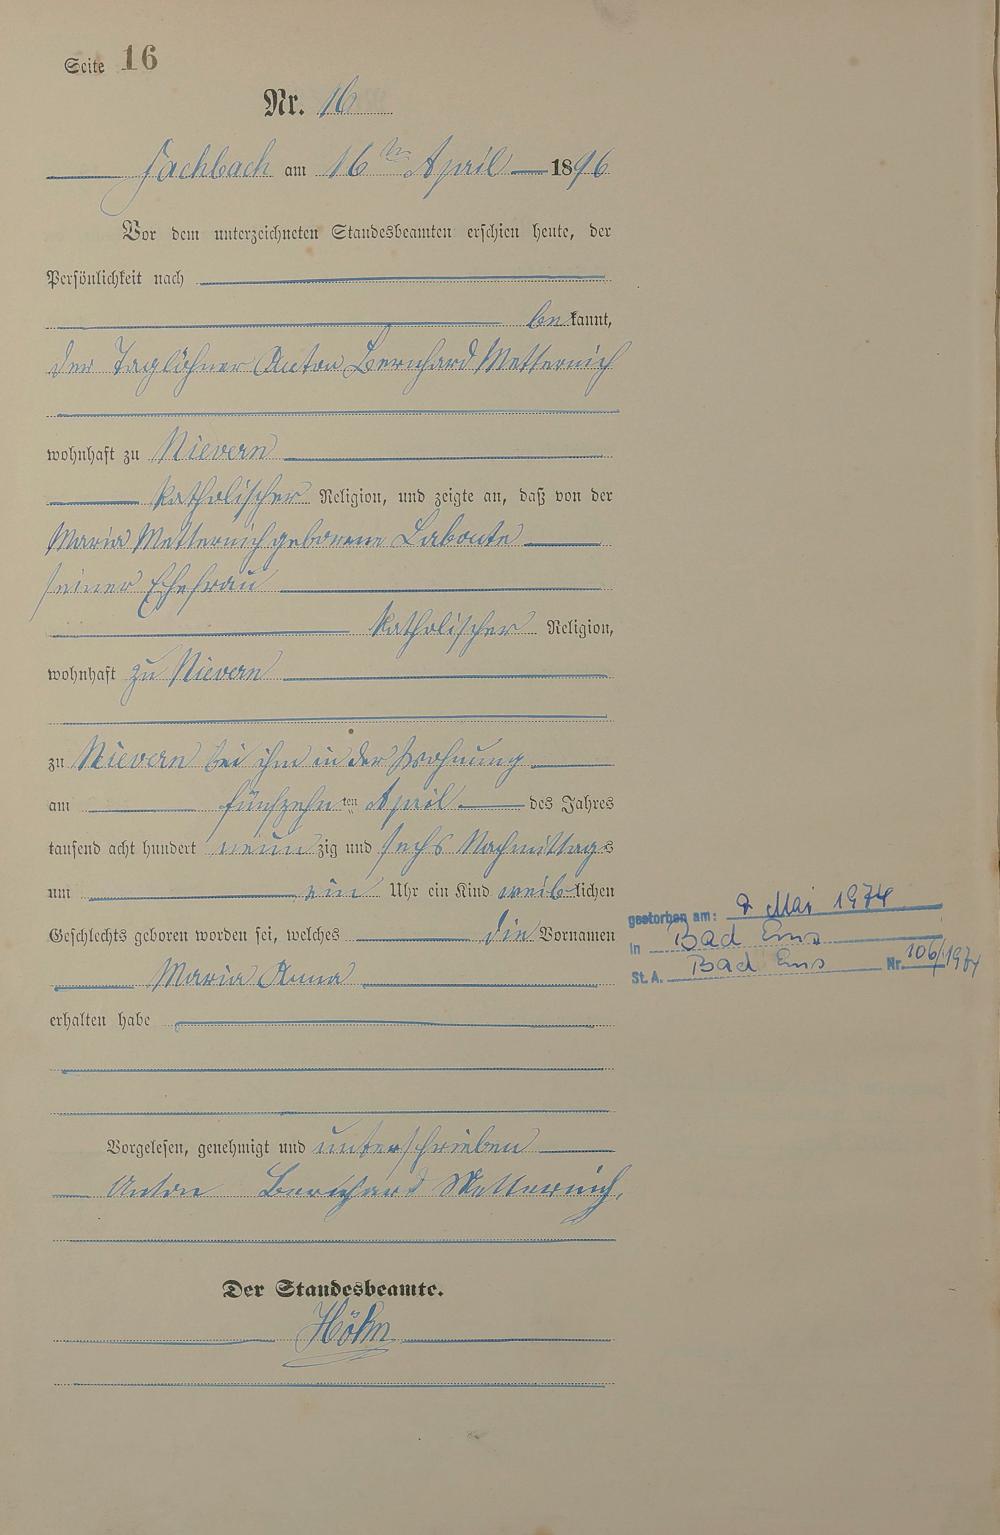 Seite 16
Nr. 16
Fachbach am 16ten April 1896
Vor dem unterzeichneten Standesbeamten erschien heute, der
Persönlichkeit nach
bekannt,
der Taglöhner Anton Bernhard Metternich
wohnhaft zu Nievern
katholischer Religion, und zeigte an, daß von der
Maria Metternich geborene Labonte
seiner Ehefrau
katholischer Religion,
wohnhaft zu Nievern
zu Nievern bei ihm in der Wohnung
am fünfzehnten April des Jahres
tausend acht hundert neunzig und sechs Nachmittags
um ein Uhr ein Kind weiblichen
Geschlechts geboren worden sei, welches die Vornamen
Maria Anna
erhalten habe
Vorgelesen, genehmigt und unterschrieben
Anton Bernhard Metternich,
Der Standesbeamte.
gestorben am: Mai 1974
in Bad Ems
St. A. Bad Ems Nr. 106/1974